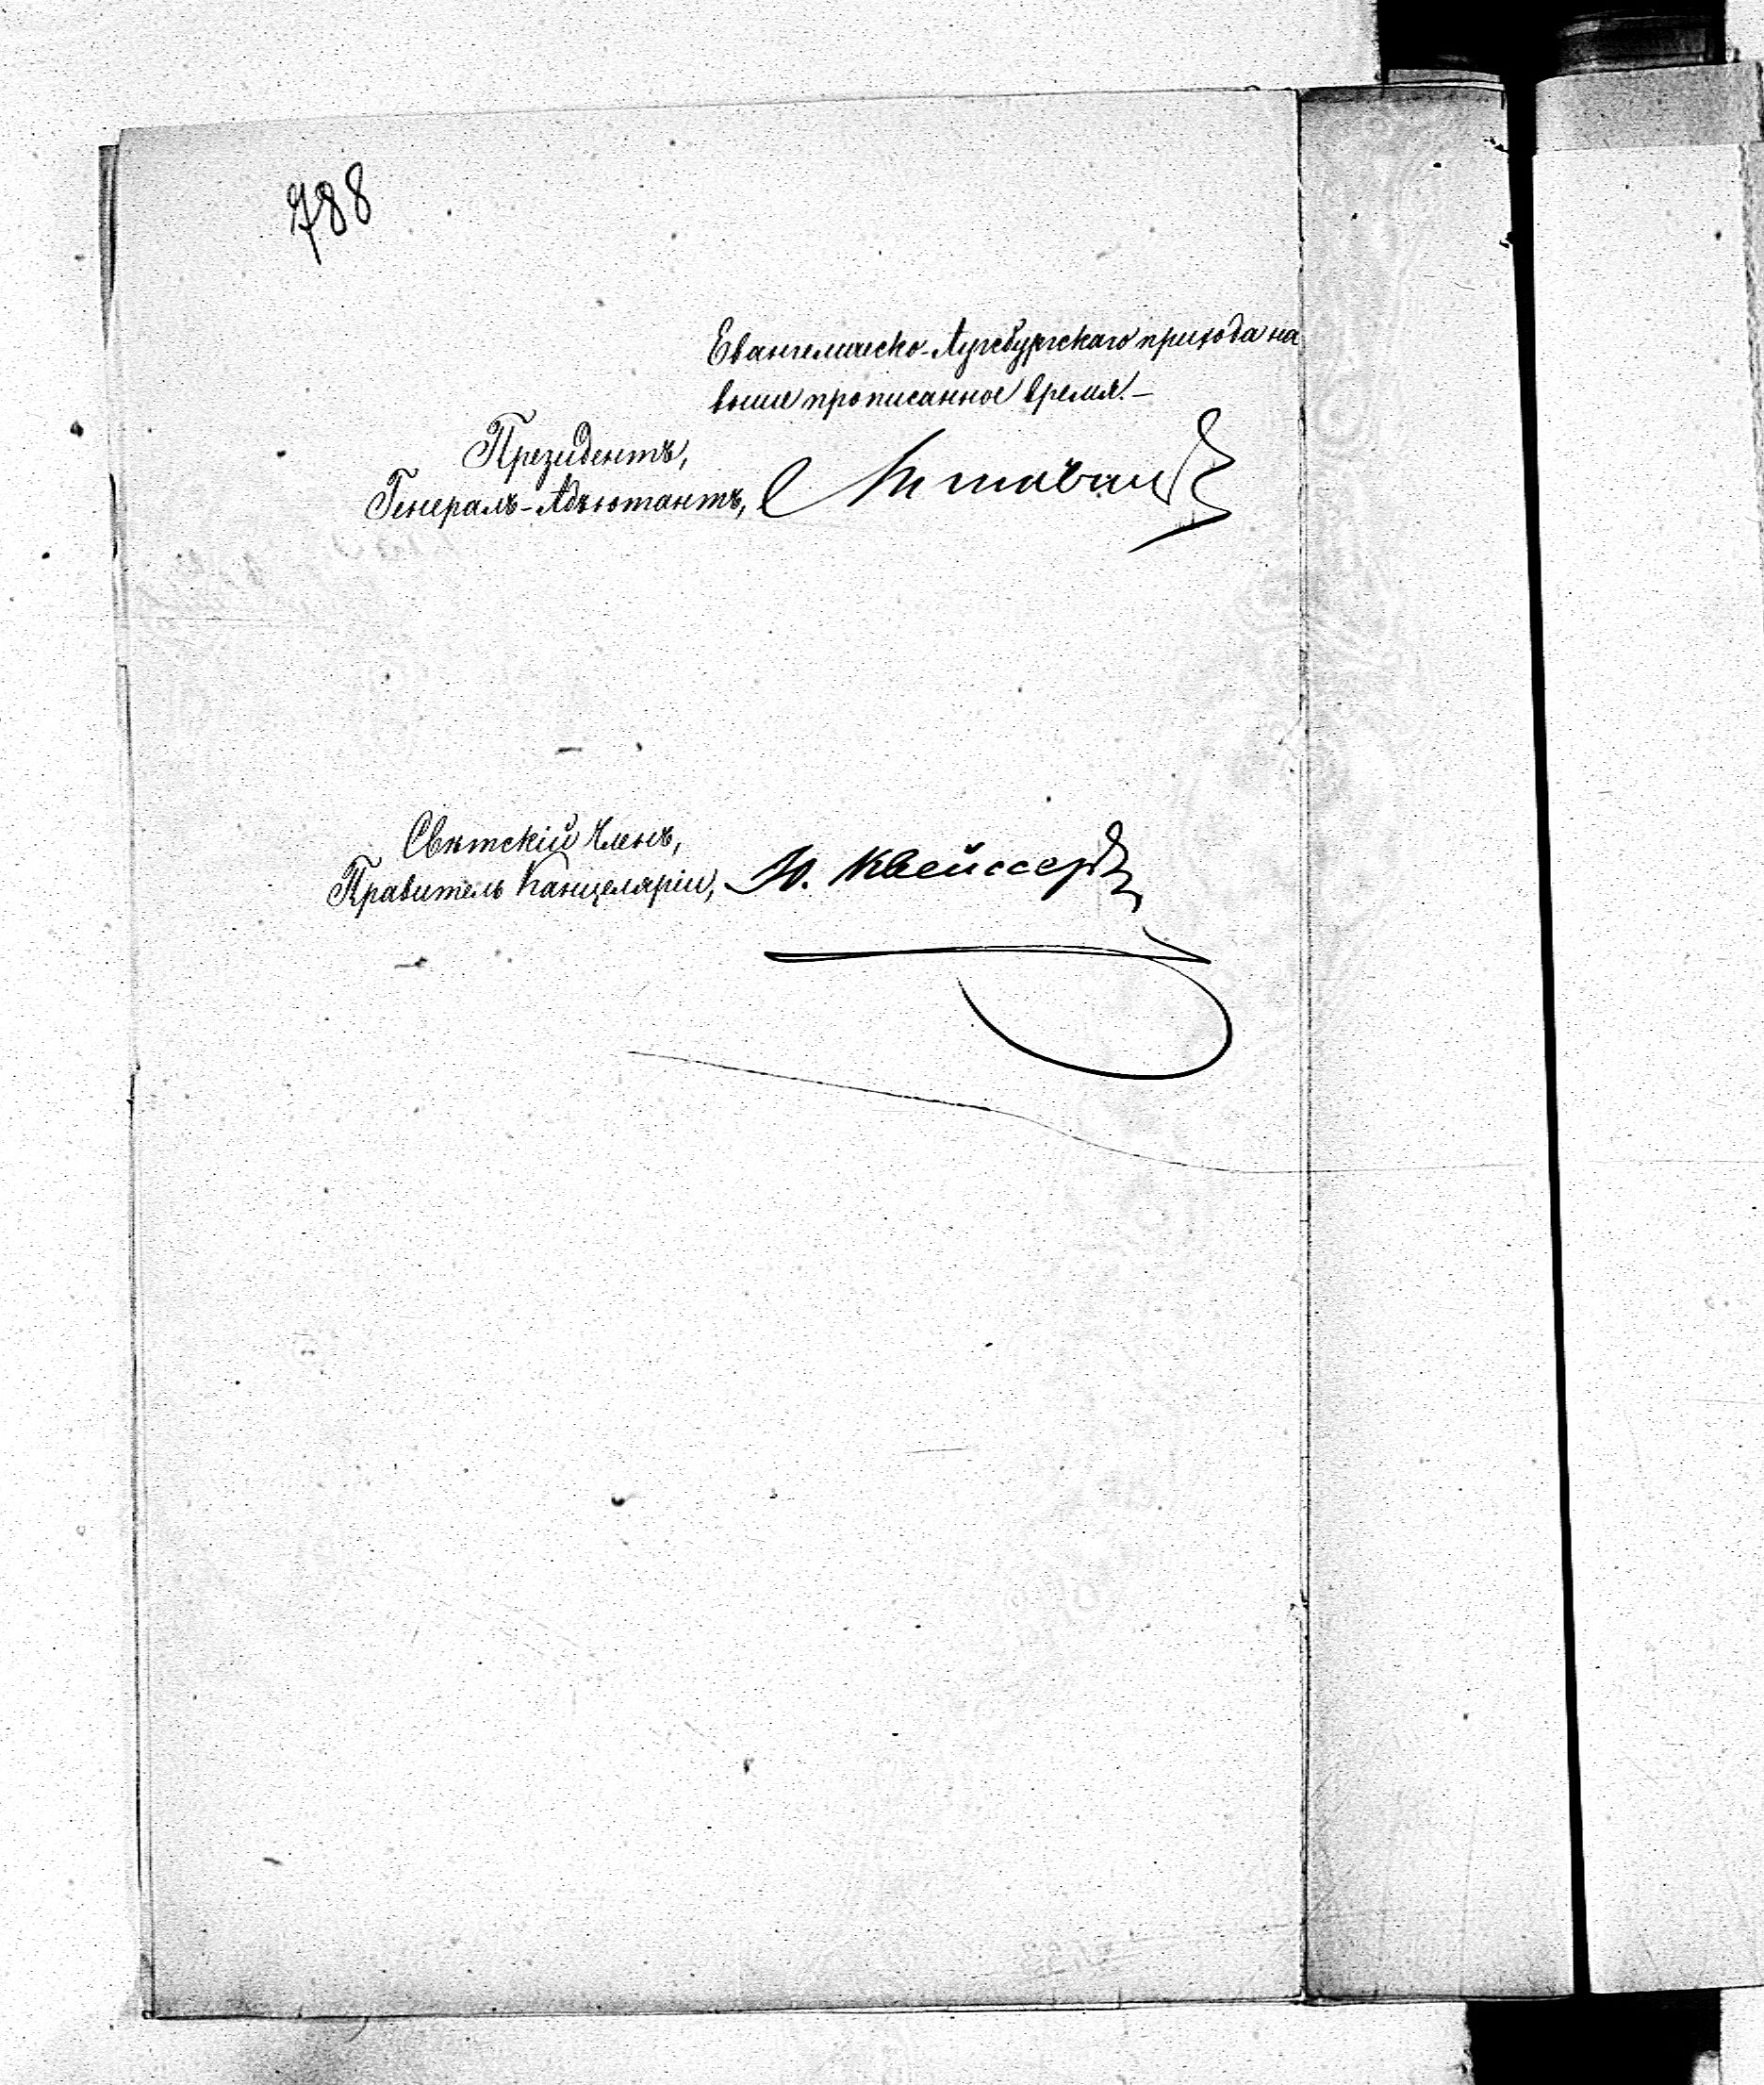 788
Евангелическо-Аугсбургскаго прихода на
выше прописанное время.—
Президентъ,
Генералъ-Адъютантъ,
Свѣтскій Членъ,
Правитель Канцеляріи, Ю. Квейссеръ